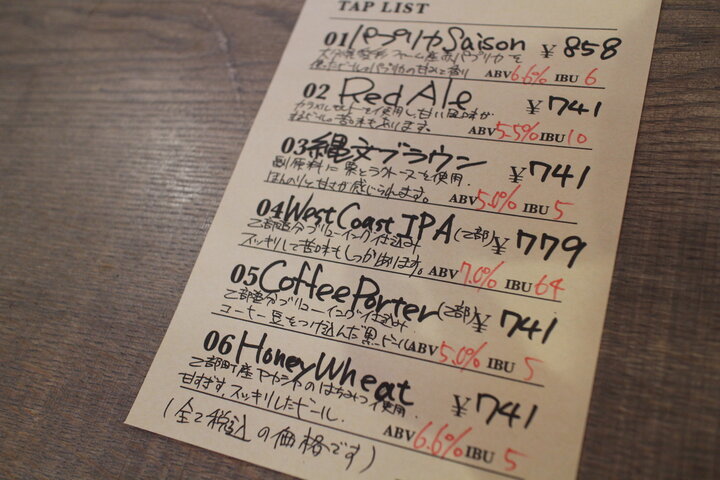 TAP LIST
01 パプリカ Saison ¥858
ファーム産赤パプリカを
使ったビール。パプリカの甘みと香り ABV 6.6% IBU 6
02 Red Ale ¥741
カラメルモルトを使用し、甘い風味が
苦味もあります。 ABV 5.5% IBU 10
03 縄文ブラウン ¥741
副原料に栗とラクトースを使用.
ほんのりと甘さが感じられます。 ABV 5.0% IBU 5
04 West Coast IPA (乙部) ¥779
乙部追分ブリューイング仕込み
スッキリして苦味もしっかあります。 ABV 7.0% IBU 64
05 Coffee Porter (乙部) ¥741
乙部追分ブリューイング仕込み.
コーヒー豆をつけ込んだ黒ビール ABV 5.0% IBU 5
06 Honey Wheat ¥741
乙部町産アカシヤのはちみつ使用.
甘すぎず、スッキリしたビール. ABV 6.6% IBU 5
(全て税込の価格です)